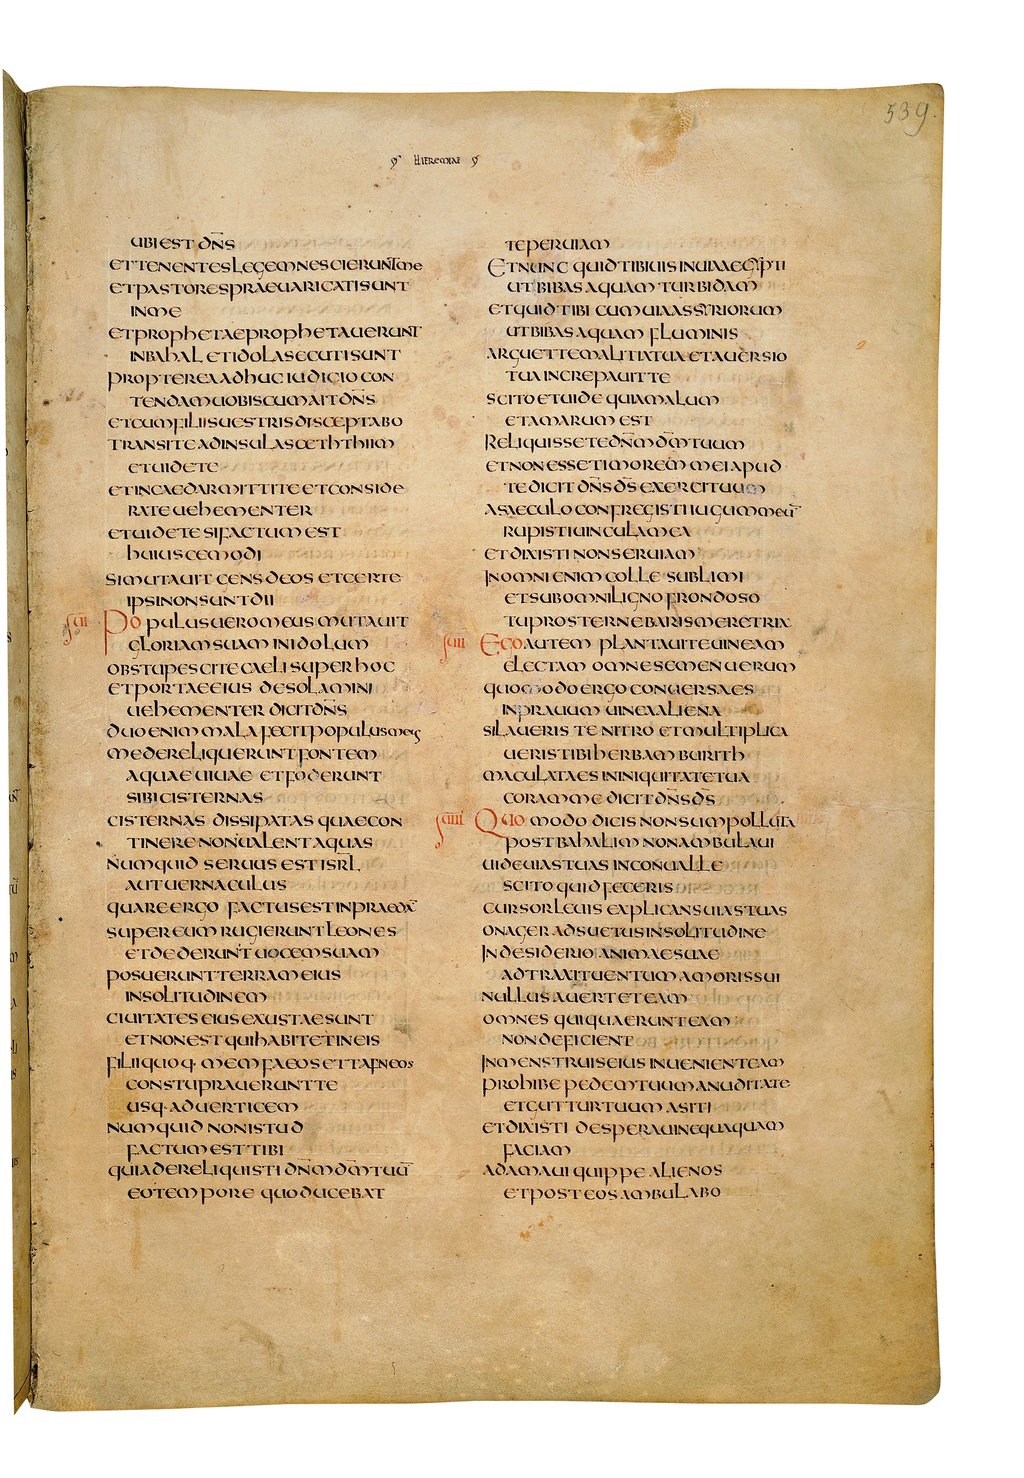 539.
HIEREMIAE
UBI EST DN̅S
ET TENENTES LEGEM NESCIERUNT ME
ET PASTORES PRAEUARICATI SUNT
IN ME
ET PROPHETAE PROPHETAUERUNT
IN BAHAL ET IDOLA SECUTI SUNT
PROPTEREA ADHUC IUDICIO CON
TENDAM UOBISCUM AIT DN̅S
ET CUM FILIIS UESTRIS DISCEPTABO
TRANSITE AD INSULAS CETHTHIIM
ET UIDETE
ET IN CAEDAR MITTITE ET CONSIDE
RATE UEHEMENTER
ET UIDETE SI FACTUM EST
HUIUSCEMODI
SI MUTAUIT GENS DEOS ET CERTE
IPSI NON SUNT DII
POPULUS UERO MEUS MUTAUIT
GLORIAM SUAM IN IDOLUM
OBSTUPESCITE CAELI SUPER HOC
ET PORTAE EIUS DESOLAMINI
UEHEMENTER DICIT DN̅S
DUO ENIM MALA FECIT POPULUS MEUS
ME DERELIQUERUNT FONTEM
AQUAE UIUAE ET FODERUNT
SIBI CISTERNAS
CISTERNAS DISSIPATAS QUAE CON
TINERE NON UALENT AQUAS
NUMQUID SERUUS EST ISRL̅
AUT UERNACULUS
QUARE ERGO FACTUS EST IN PRAEDA̅
SUPER EUM RUGIERUNT LEONES
ET DEDERUNT UOCEM SUAM
POSUERUNT TERRAM EIUS
IN SOLITUDINEM
CIUITATES EIUS EXUSTAE SUNT
ET NON EST QUI HABITET IN EIS
FILII QUOQ· MEMFAEOS ET TAFNEOS
CONSTUPRAUERUNT TE
USQ· AD UERTICEM
NUMQUID NON ISTUD
FACTUM EST TIBI
QUIA DERELIQUISTI DN̅M DM̅ TUU̅
EO TEMPORE QUO DUCEBAT
TE PER UIAM
ET NUNC QUID TIBI UIS IN UIA AEGYPTI
UT BIBAS AQUAM TURBIDAM
ET QUID TIBI CUM UIA ASSYRIORUM
UT BIBAS AQUAM FLUMINIS
ARGUET TE MALITIA TUA ET AUERSIO
TUA INCREPAUIT TE
SCITO ET UIDE QUIA MALUM
ET AMARUM EST
RELIQUISSE TE DN̅M DM̅ TUUM
ET NON ESSE TIMOREM MEI APUD
TE DICIT DN̅S DS̅ EXERCITUUM
A SAECULO CONFREGISTI IUGUM MEU̅
RUPISTI UINCULA MEA
ET DIXISTI NON SERUIAM
IN OMNI ENIM COLLE SUBLIMI
ET SUB OMNI LIGNO FRONDOSO
TU PROSTERNEBARIS MERETRIX
EGO AUTEM PLANTAUI TE UINEAM
ELECTAM OMNE SEMEN UERUM
QUOMODO ERGO CONUERSA ES
IN PRAUUM UINEA ALIENA
SI LAUERIS TE NITRO ET MULTIPLICA
UERIS TIBI HERBAM BURITH
MACULATA ES IN INIQUITATE TUA
CORAM ME DICIT DN̅S DS̅
QUOMODO DICIS NON SUM POLLUTA
POST BAHALIM NON AMBULAUI
UIDE UIAS TUAS IN CONUALLE
SCITO QUID FECERIS
CURSOR LEUIS EXPLICANS UIAS TUAS
ONAGER ADSUETUS IN SOLITUDINE
IN DESIDERIO ANIMAE SUAE
ADTRAXIT UENTUM AMORIS SUI
NULLUS AUERTET EAM
OMNES QUI QUAERUNT EAM
NON DEFICIENT
IN MENSTRUIS EIUS INUENIENT EAM
PROHIBE PEDEM TUUM A NUDITATE
ET GUTTUR TUUM A SITI
ET DIXISTI DESPERAUI NEQUAQUAM
FACIAM
ADAMAUI QUIPPE ALIENOS
ET POST EOS AMBULABO